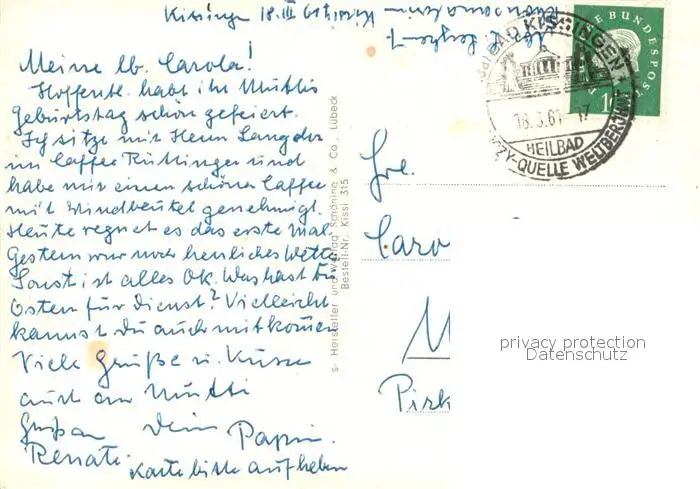 Kissingen 18.III 61
Meine lb. Carola!
Hoffentl. habt ihr Muttis
Geburtstag schön gefeiert.
Ich sitze mit Herrn Langdor
im Caffee Küttinger und
habe mir einen schönen Caffee
mit Windbeutel genehmigt.
Heute regnet es das erste Mal.
Gestern war noch herrliches Wetter
Sonst ist alles OK. Was hast Du
Ostern für Dienst? Vielleicht
kannst Du auch mitkommen
Viele Grüße u. Küsse
auch an Mutti
Dein Papi.
Renate.
Karte bitte aufheben
Hersteller und Verlag Schöning & Co., Lübeck
Bestell-Nr. Kissi 315
BAD KISSINGEN
18.3.61-17
HEILBAD
-QUELLE WELTBERÜHMT
E BUNDESPOS
10
Frl.
Caro
M
Pirk
privacy protection
Datenschutz